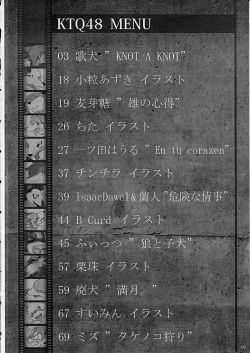 KTQ48 MENU
03 歌犬 ”KNOT A KNOT”
18 小粒あずき イラスト
19 麦芽糖 ”雄の心得”
26 ちた イラスト
27 一ツ田はうる ”En tu corazen”
37 チンチラ イラスト
39 IsaacDawel＆蘭人”危険な情事”
44 B-Curd イラスト
45 ふぃっつ ”狼と子犬”
57 栗珠 イラスト
59 廃犬 ”満月。”
67 すいみん イラスト
69 ミズ ”タケノコ狩り”